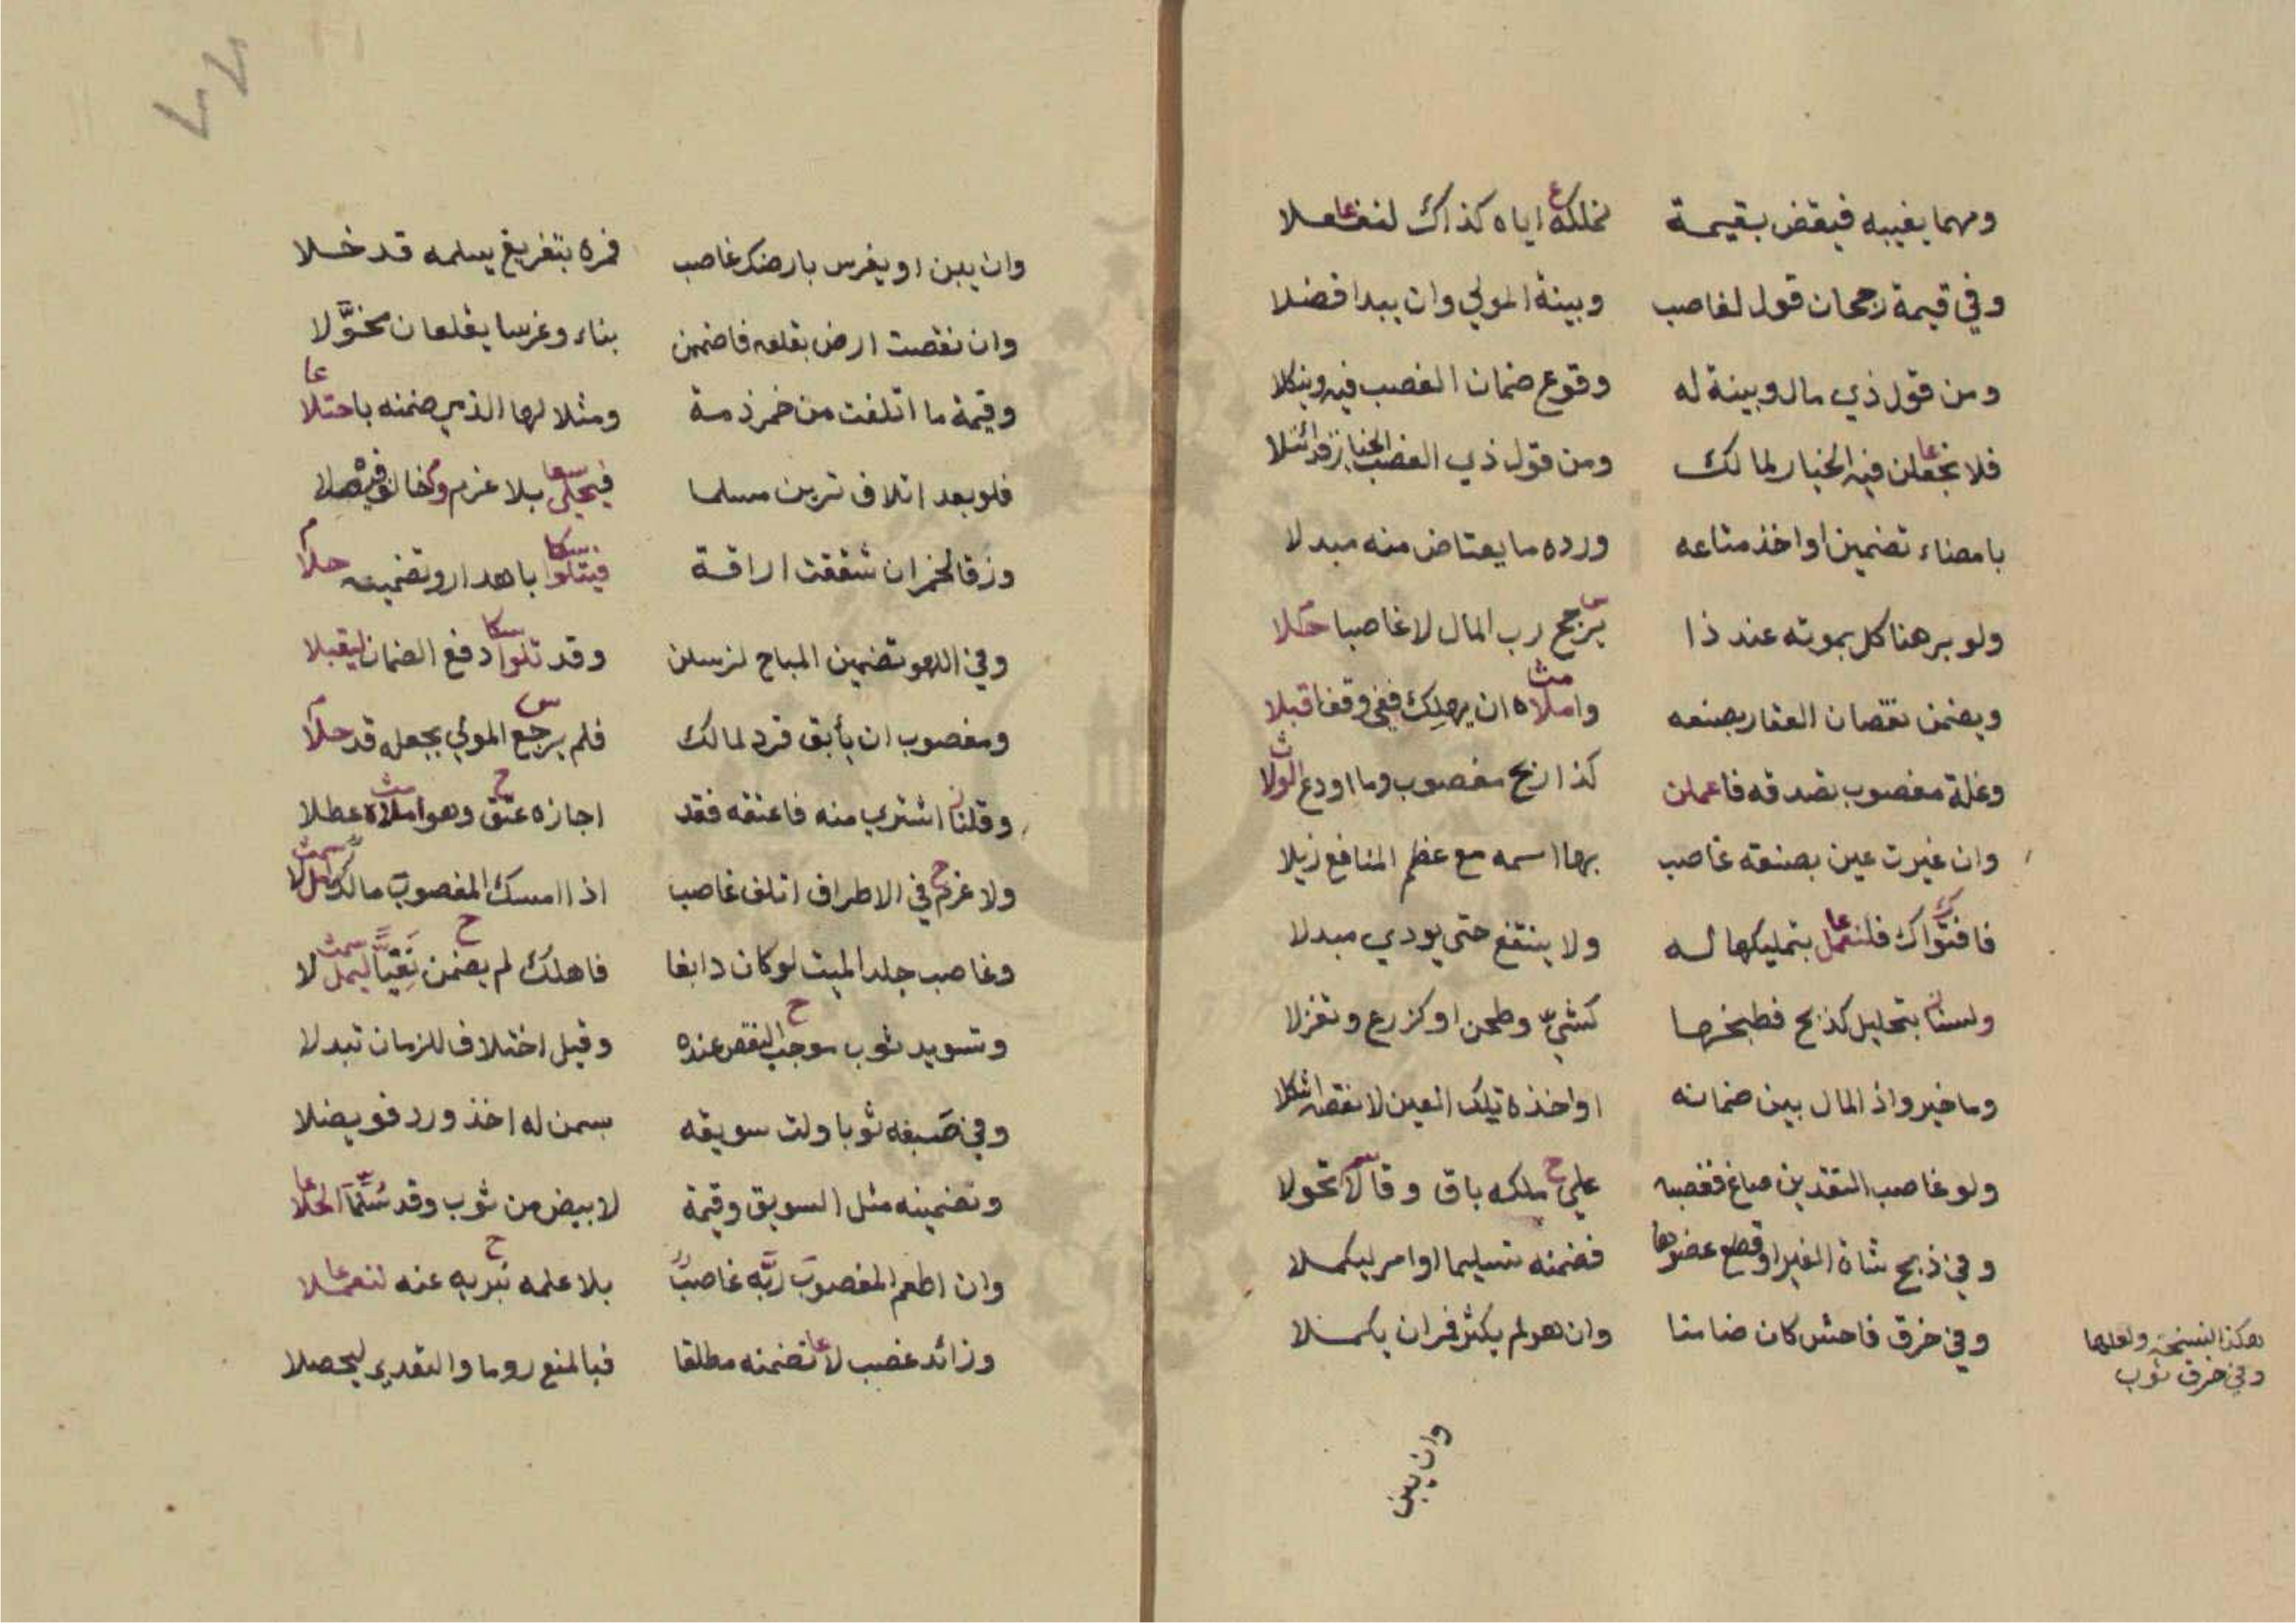 ومهما يغيبه فيقض بقيمة نملكه اياه كذاك لنفعلا
وفي قيمة رجحان قول لغاصب وبينة المولي وان يبدا فضلا
ومن قول ذي مال وبينة له وقوع ضمان الغصب فيه وينكلا
فلا تجعلن فيه الخيار لمالك ومن قول ذي الغصب الخيار
بامضاء تضمين او اخذ متاعه ورده ما يعتاض منه مبدلا
ولو برهنا كل بموته عند ذا يرجح رب المال لا غاصبا حلا
ويضمن نقصان العقار بصنعه واملاه ان يهلك ففي وقف اقبلا
وغلة مغصوب تصدقه فاعملن كذا ربح مغصوب وما اودع الولا
وان غيرت عين بصنعة غاصب بها اسمه مع عظم المنافع زيلا
بتمليكها له ولا ينتفع حتى يودي مبدلا
ولسنا بتحليل كذبح فطبخها كشي وطحن او كزرع وتغزلا
وما خير واذ المال بين ضمانه او اخذه تيلك العين لا نقصا
ولو غاصب النقدين صاغ فغصبه علي ملكه باق وقالا تحولا
وفي ذبح شاة الغير او قطع عضوها فضمنه تسليما او امر ليكملا
وفي خرق فاحش كان ضامنا وان هو لم يكثر فران يكملا
هكذا النسخة ولعلها
وفي خرق ثوب
وان يبن
٤٢
وان يبن او يغرس بارضك غاصب فمره بتفريغ يسلمه قد خلا
وان نقصت ارض بقلعه فاضمن بناء وغرسا يقلعان مخوَّلا
وقيمة ما اتلفت من خمر ذمة ومثلا لها الذمي ضمنه باحتلا
فلو بعد اتلاف ترين مسلما بلا غرم
وزق الخمر ان شققت اراقة فيتلوا باهدار وتضمينه حلا
وفي اللهو تضمين المباح لزسلن وقد تلوا دفع الضمان ليقبلا
ومغصوب ان يأبق فرد لمالك فلم يرجع المولي بجعله قد حلا
وقلنا اشتري منه فاعتقه فقد اجازه عتق وهو املاه عطلا
ولا غرم في الاطراف اتلف غاصب اذا امسك المغصوب مالك
وغاصب جلد الميت لو كان دابغا فاهلك لم يضمن
وتسويد ثوب موجب النقص عنده وقيل اختلاف للزمان تبدلا
وفي صبغه ثوبا ولت سويقه بسمن له اخذ ورد فويضلا
وتضمينه مثل السويق وقيمة لابيض من ثوب وقد
وان اطعم المغصوب ربه غاصب بلا علمه نبريه عنه لنعملا
وزائد غصب لا تضمنه مطلقا فبالمنع روما والتعدي ليحصلا